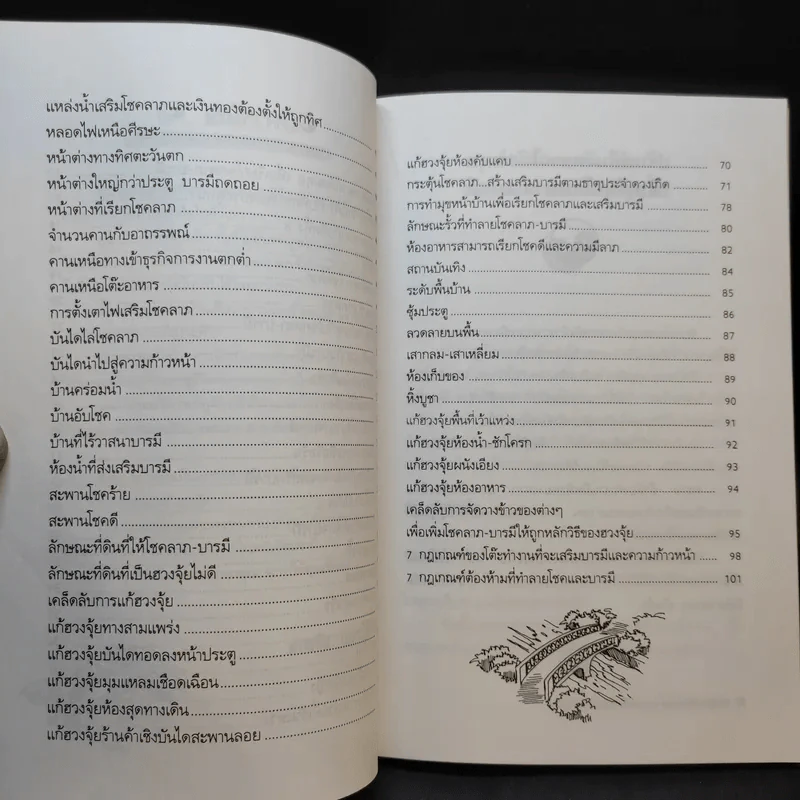 แหล่งน้ำเสริมโชคลาภและเงินทองต้องตั้งให้ถูกทิศ
หลอดไฟเหนือศีรษะ
หน้าต่างทางทิศตะวันตก
หน้าต่างใหญ่กว่าประตู บารมีถดถอย
หน้าต่างที่เรียกโชคลาภ
จำนวนคานกับอาถรรพณ์
คานเหนือทางเข้าธุรกิจการงานตกต่ำ
คานเหนือโต๊ะอาหาร
การตั้งเตาไฟเสริมโชคลาภ
บันไดไล่โชคลาภ
บันไดนำไปสู่ความก้าวหน้า
บ้านคร่อมน้ำ
บ้านอับโชค
บ้านที่ไร้วาสนาบารมี
ห้องน้ำที่ส่งเสริมบารมี
สะพานโชคร้าย
สะพานโชคดี
ลักษณะที่ดินที่ให้โชคลาภ-บารมี
ลักษณะที่ดินที่เป็นฮวงจุ้ยไม่ดี
เคล็ดลับการแก้ฮวงจุ้ย
แก้ฮวงจุ้ยทางสามแพร่ง
แก้ฮวงจุ้ยบันไดทอดลงหน้าประตู
แก้ฮวงจุ้ยมุมแหลมเชือดเฉือน
แก้ฮวงจุ้ยห้องสุดทางเดิน
แก้ฮวงจุ้ยร้านค้าเชิงบันไดสะพานลอย
แก้ฮวงจุ้ยห้องคับแคบ 70
กระตุ้นโชคลาภ...สร้างเสริมบารมีตามธาตุประจำดวงเกิด 71
การทำมุขหน้าบ้านเพื่อเรียกโชคลาภและเสริมบารมี 78
ลักษณะรั้วที่ทำลายโชคลาภ-บารมี 80
ห้องอาหารสามารถเรียกโชคดีและความมีลาภ 82
สถานบันเทิง 84
ระดับพื้นบ้าน 85
ซุ้มประตู 86
ลวดลายบนพื้น 87
เสากลม-เสาเหลี่ยม 88
ห้องเก็บของ 89
หิ้งบูชา 90
แก้ฮวงจุ้ยพื้นที่เว้าแหว่ง 91
แก้ฮวงจุ้ยห้องน้ำ-ชักโครก 92
แก้ฮวงจุ้ยผนังเอียง 93
แก้ฮวงจุ้ยห้องอาหาร 94
เคล็ดลับการจัดวางข้าวของต่างๆ
เพื่อเพิ่มโชคลาภ-บารมีให้ถูกหลักวิธีของฮวงจุ้ย 95
7 กฎเกณฑ์ของโต๊ะทำงานที่จะเสริมบารมีและความก้าวหน้า 98
7 กฎเกณฑ์ต้องห้ามที่ทำลายโชคและบารมี 101